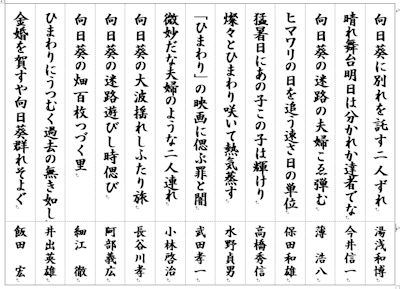 向日葵に別れを託す二人ずれ 湯浅和博
晴れ舞台明日は分かれか達者でな 今井信一
向日葵の迷路の夫婦こゑ弾む 薄 浩八
ヒマワリの日を追う速さ日の単位 保田和雄
猛暑日にあの子この子は輝けり 高橋秀信
燦々とひまわり咲いて熱気蒸す 水野貞男
「ひまわり」の映画に偲ぶ罪と闇 武田孝一
微妙だな夫婦のような二人連れ 小林啓治
向日葵の大波揺れしふたり旅 長谷川孝
向日葵の迷路遊びし時偲び 阿部義広
向日葵の畑百枚つづく里 細江 徹
ひまわりにうつむく過去の無き如し 井出英雄
金婚を賀すや向日葵群れそよぐ 飯田 宏